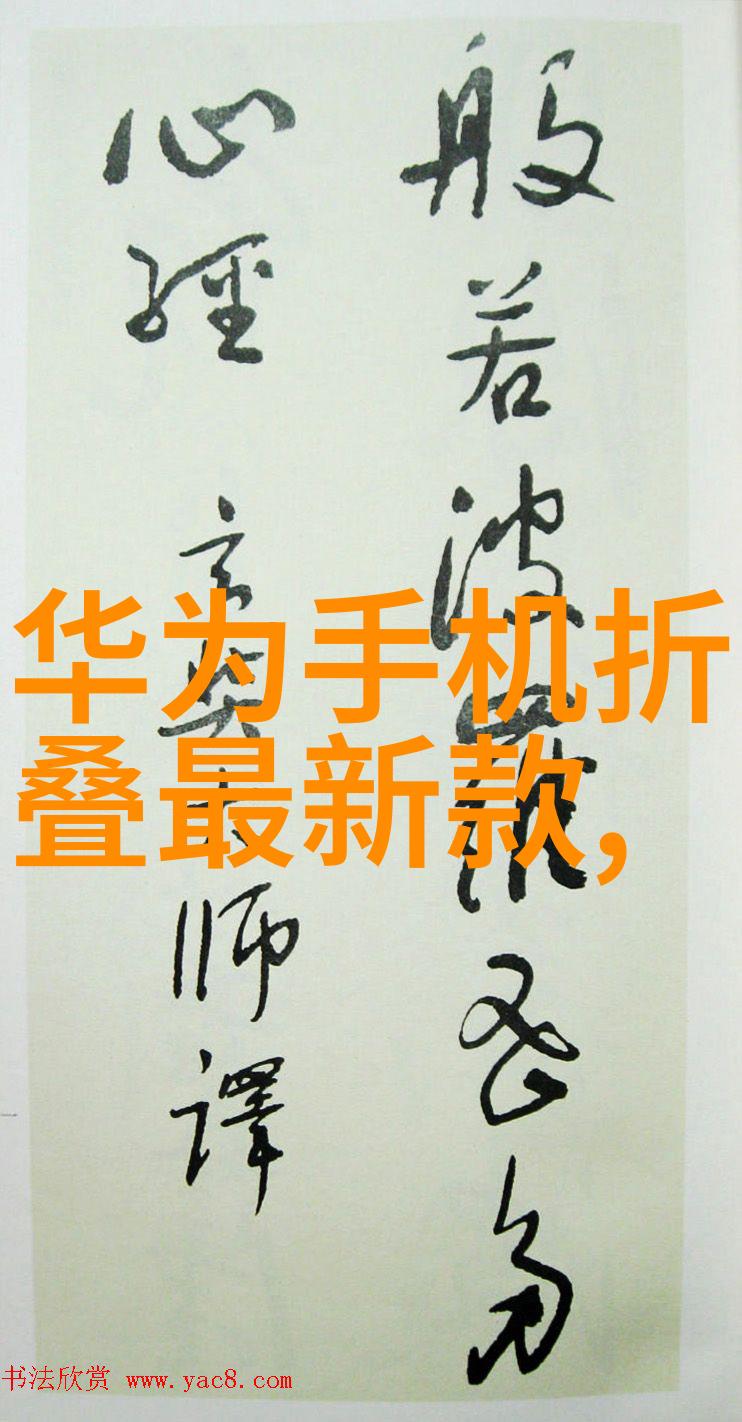 般若波羅密多
心經 玄奘大师譯
华为手机折
叠最新款,
书法欣赏 www.yac8.com